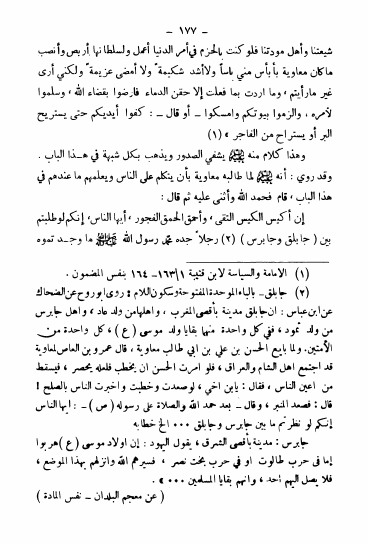 - ١٧٧ -
شيعتنا وأهل مودتنا فلو كنت بالحزم في أمر الدنيا أعمل ولسلطانها أربص وأنصب
ما كان معاوية بأبأس مني بأساً ولا أشد شكيمة ولا أمضى عزيمة ولكني أرى
غير ما رأيتم ، وما أردت بما فعلت إلا حقن الدماء فارضوا بقضاء الله ، وسلموا
لأمره ، والزموا بيوتكم وامسكوا ـ أو قال ـ : كفوا أيديكم حتى يستريح
البر أو يستراح من الفاجر » (١)
وهذا كلام منه ﷺ يشفي الصدور ويذهب بكل شبهة في هـذا الباب .
وقد روي : أنه ﷺ لما طالبه معاوية بأن يتكلم على الناس ويعلمهم ما عندهم في
هذا الباب ، قام فحمد الله وأثنى عليه ثم قال :
إن أكيس الكيس التقى ، وأحمق الحمق الفجور ، أيها الناس ، إنكم لو طلبتم
بين ( جابلق وجابرس ) (٢) رجلاً جده محمد رسول الله ﷺ ما وجـد تموه
(١) الامامة والسياسة لابن قتيبة ١/١٦٣ـ ١٦٤ بنفس المضمون .
(٢) جابلق ـ بالباء الموحدة المفتوحة وسكون اللام : روى ابو روح عن الضحاك
عن ابن عباس : ان جابلق مدينة بأقصى المغرب ، واهلها من ولد عاد ، واهل جابرس
من ولد ثمود ، ففي كل واحدة منها بقايا ولد موسى ( ع ) ، كل واحدة من
الأمتين. ولما بايع الحسن بن علي بن ابي طالب معاوية ، قال عمرو بن العاص لمعاوية
قد اجتمع اهل الشام والعراق ، فلو امرت الحسن ان يخطب فلعله يحصر ، فيسقط
من اعين الناس ، فقال : يابن اخي ، لو صعدت وخطبت واخبرت الناس بالصلح !
قال : فصعد المنبر ، وقال ـ بعد حمد الله والصلاة على رسوله ( ص ) ـ : ايها الناس
إنكم لو نظرتم ما بين جابرس وجابلق ٠٠٠ الخ خطابه
جابرس : مدينة بأقصى الشرق ، يقول اليهود : إن اولاد موسى ( ع ) هربوا
إما في حرب طالوت او في حرب بخت نصر ، فسيرهم الله وانزلهم بهذا الموضع ،
فلا يصل اليهم احد ، وانهم بقايا المسلمين ٠٠٠ » .
( عن معجم البلدان ـ نفس المادة )